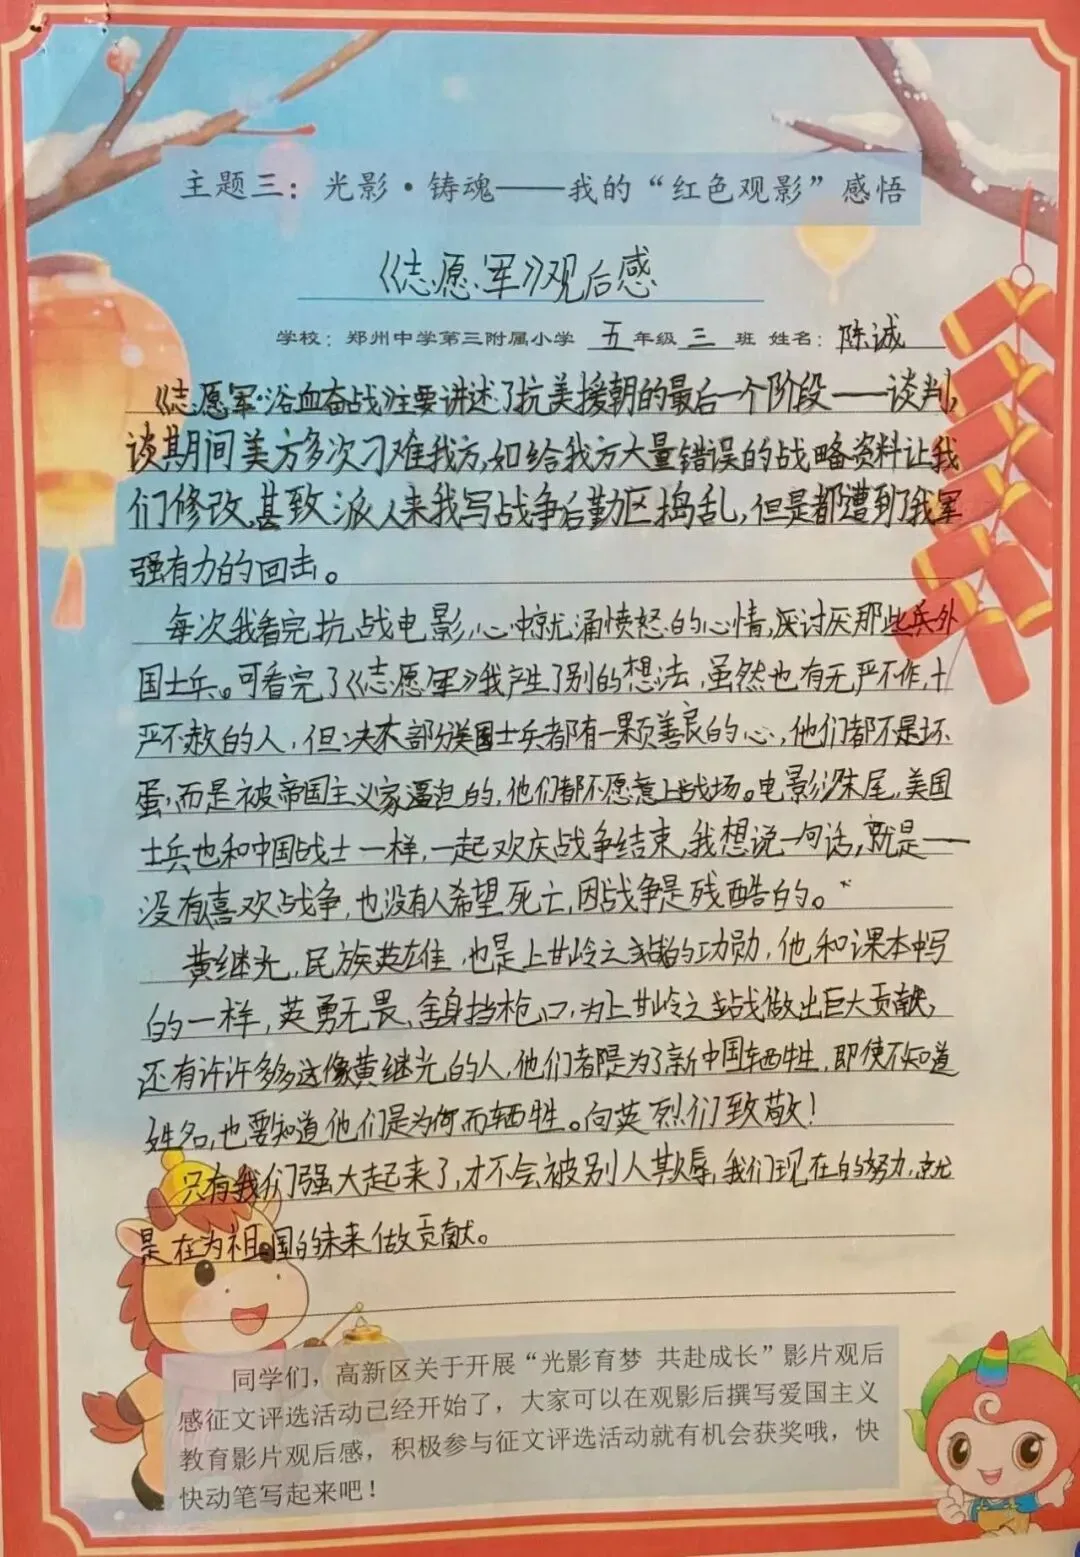 主题三：光影·铸魂——我的“红色观影”感悟
《志愿军》观后感
学校：郑州中学第三附属小学 五年级三班 姓名：陈诚
《志愿军·浴血奋战》主要讲述了抗美援朝的最后一个阶段——谈判，
谈期间美方多次刁难我方，如给我方大量错误的战略资料让我
们修改，甚致派人来我写战争后勤区捣乱，但是都遭到了我军
强有力的回击。
每次我看完抗战电影，心中就涌愤怒的心情，厌讨厌那些兵外
国士兵。可看完了《志愿军》我产生了别的想法，虽然也有无严不作，十
严不赦的人，但大部分美国士兵都有一颗善良的心，他们都不是坏
蛋，而是被帝国主义家逼迫的，他们都不愿意上战场。电影末尾，美国
士兵也和中国战士一样，一起欢庆战争结束，我想说一句话，就是——
没有喜欢战争，也没有人希望死亡，因战争是残酷的。
黄继光，民族英雄，也是上甘岭之战的功勋，他和课本中写
的一样，英勇无畏、舍身挡枪口，为上甘岭之战做出巨大贡献，
还有许许多多这像黄继光的人，他们都是为了新中国牺牲，即使不知道
姓名，也要知道他们是为何而牺牲。向英烈们致敬！
只有我们强大起来了，才不会被别人欺辱，我们现在的努力，就
是在为祖国的未来做贡献。
同学们，高新区关于开展“光影育梦 共赴成长”影片观后
感征文评选活动已经开始了，大家可以在观影后撰写爱国主义
教育影片观后感，积极参与征文评选活动就有机会获奖哦，快
快动笔写起来吧！